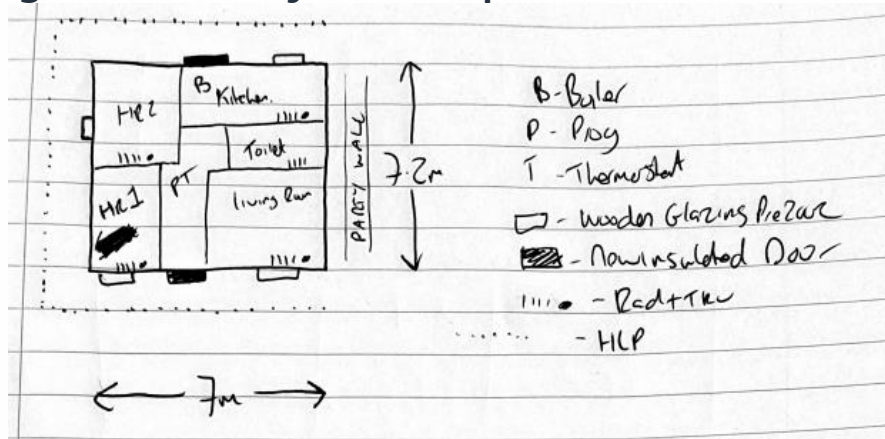 B
Kitchen.
HR2
Toilet
PT
HR1
living Room
PARTY WALL
7.2m
7m
B - Boiler
P - Prog
T - Thermostat
- Wooden Glazing Pre2002
- Non insulated Door
- Rad + TRV
- HLP